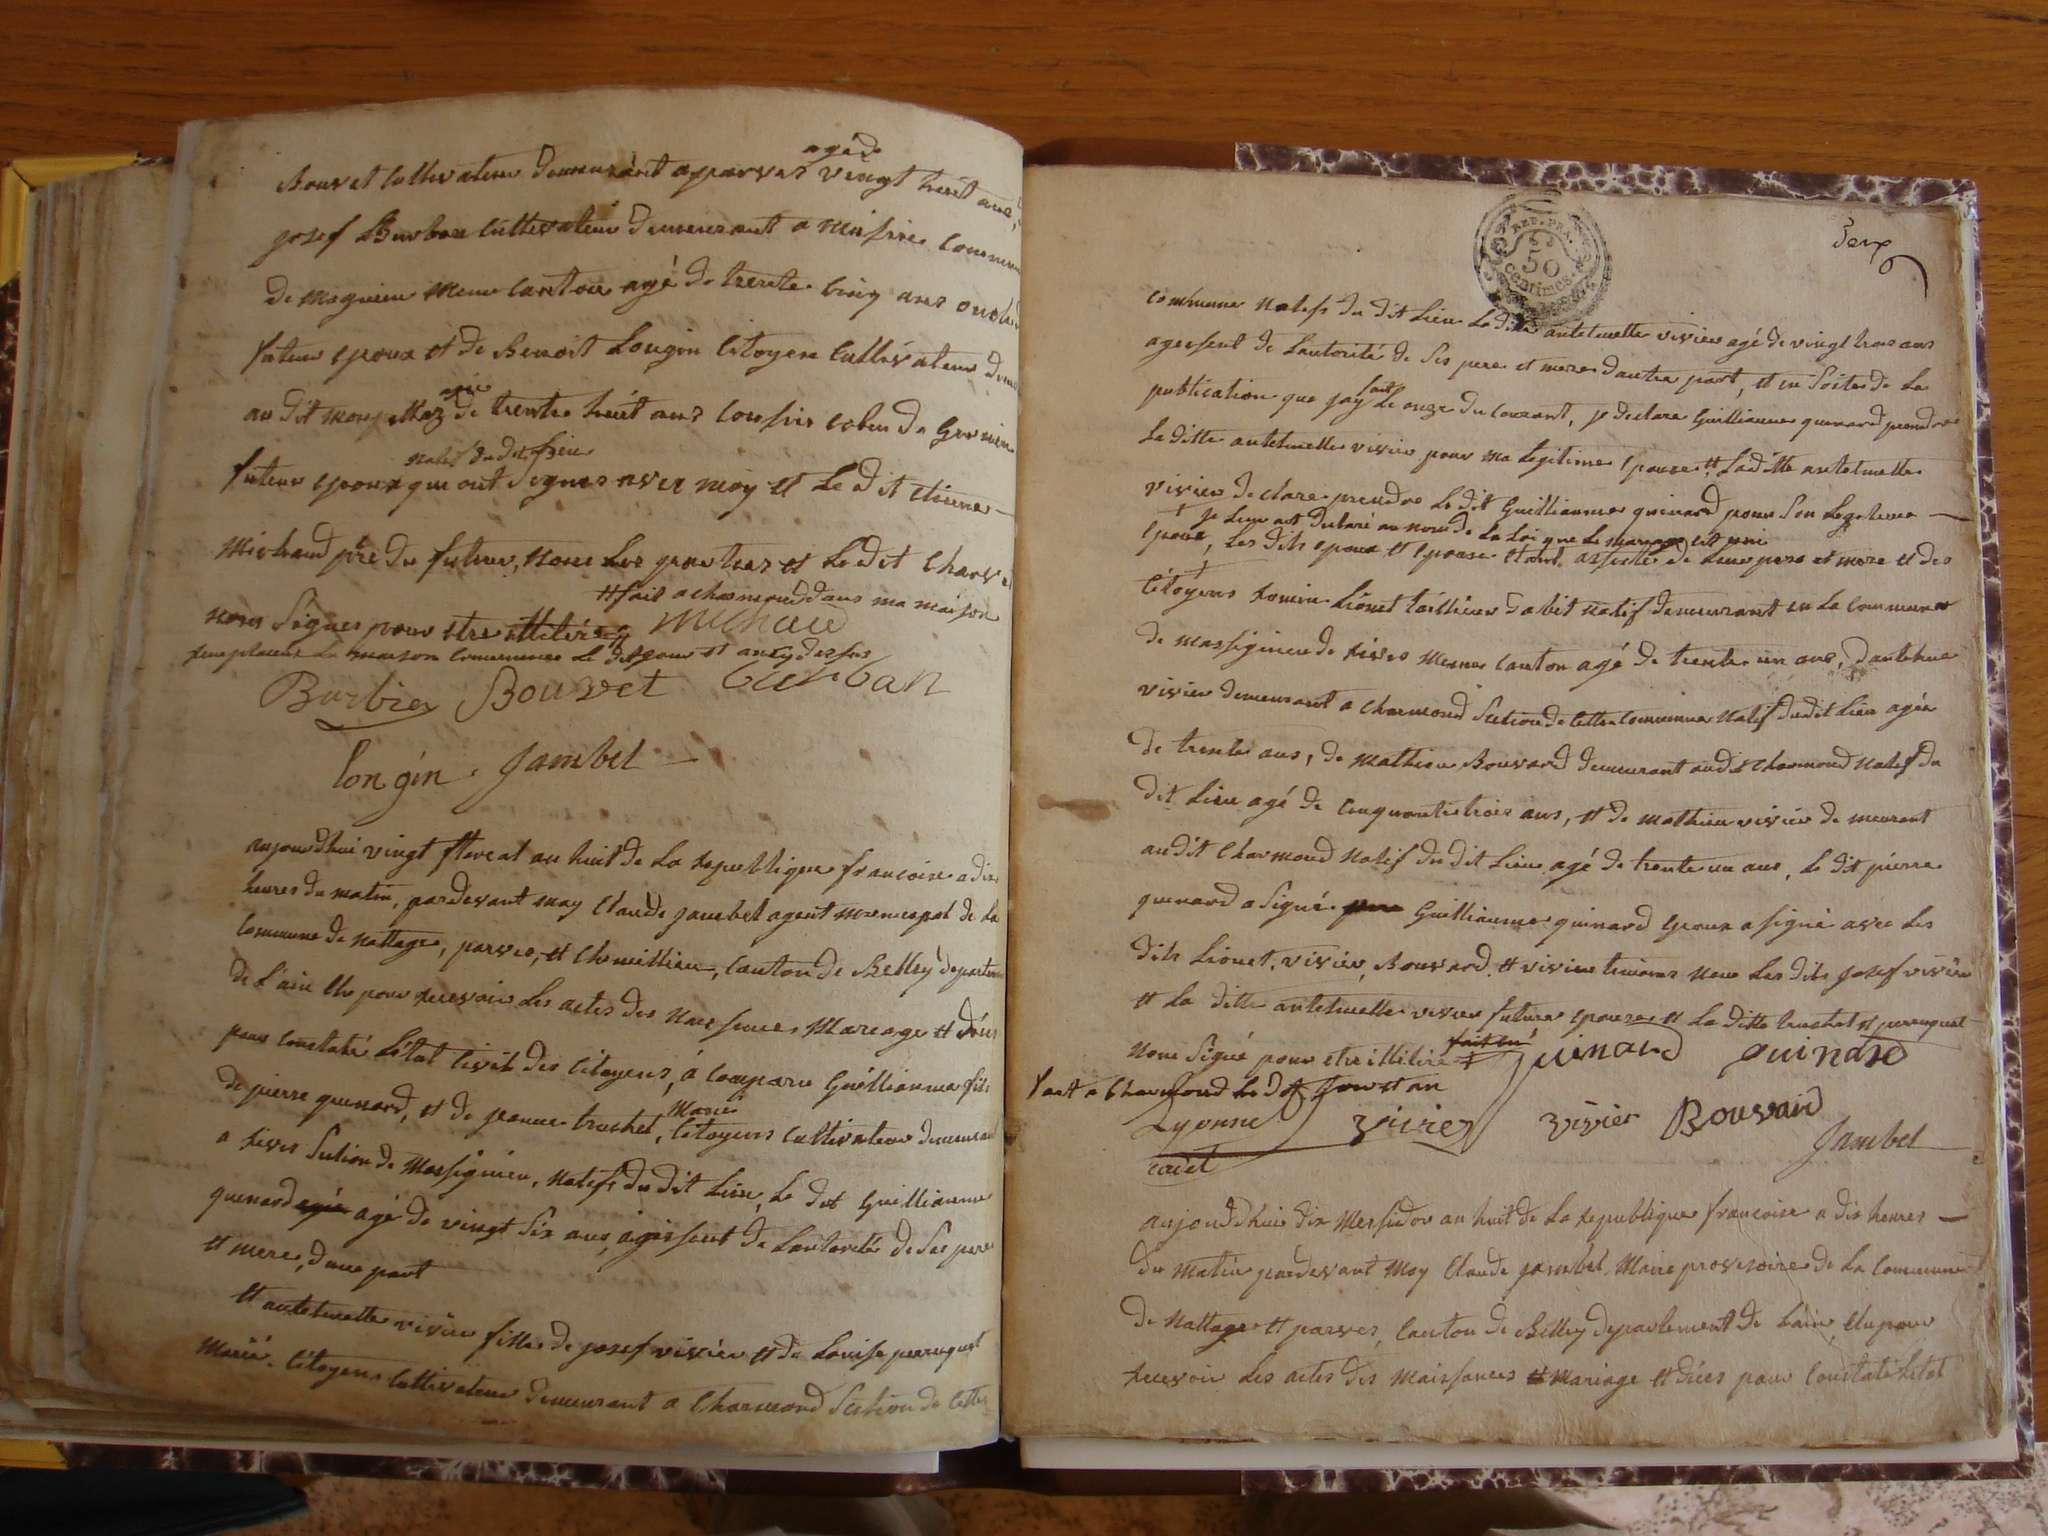 agé de
Bouvet cultivateur demeurant a parves vingt huit ans,
josef Burban cultivateur demeurant a
de magnieu meme canton agé de trente cinq ans oncle
futeur epoux et de Benoit Longin citoyen cultivateur
agée
au dit de trente huit ans cousin
natif du dit lieu
futeur epoux qui ont signes avec moy et le dit etienne
Michaud pere du futeur, non les et le dit
et fait a charmond dans ma maison
non signes pour etre illiteres Michaud
remplacent la maison commune le dit jour et an cy dessus
Barbier Bouvet Burban
longin Jambel
aujourdhui vingt floreal an huit de la republique francoise a dix
heures du matin, pardevant moy Claude jambel agent municipal de la
commune de nattage, parves, et Chemillieu, canton de Belley departement
de l'ain elu pour recevoir les actes des naissances mariage et déces
pour constaté l'état civil des citoyens, á comparu Guillianme fils
mariés
de pierre quinard, et de jeanne truchet, citoyens cultivateur demeurant
a rives section de Massignieu, natifs du dit lieu, le dit Guillianme
quinard agée agé de vingt six ans, agissent de lautorité de ses pere
et mere, dune part
et antelmette vivier fille de josef vivier et de Louise perruquet
mariés citoyens cultivateur demeurant a Charmond section de cette
REP. FRA.
50
centimes
deux
commune natifs du dit lieu la ditte antelmette vivier agé de vingt trois ans
agessent de lautorité de ses pere et mere dautre part, et en suite de la
fait
publication que jay le onze du courant, je declare Guillianme quinard prendre
la ditte antelmette vivier pour ma legitime epouse et la ditte antelmette
vivier declare prendre le dit Guillianme quinard pour son legetime
je leur ont declaré au nom de la loi que le mariage est uni
epoux, les dits epoux et epouse etant assistés de leur pere et mere et des
citoyens Lionet tailleur dabit natif demeurant en la commune
de massignieu de rives meme canton agé de trente un ans, dantelme
vivier demeurant a charmond section de cette commune natif du dit lieu agée
de trente ans, de mathieu Bouvard demeurant audit charmond natif du
dit lieu agé de cinquante trois ans, et de mathieu vivier demeurant
audit charmond natif du dit lieu agé de trente un ans, le dit pierre
quinard a signé Guillianme quinard epoux a signé avec les
dits Lionet, vivier, Bouvard et vivier temoins non les dits josef vivier
et la ditte antelmette vivier future epouse et la ditte truchet et perruquet
fait en
non signé pour etre illitere quinard quinard
fait a Charmond le dit jour et an
Lyonne vivier vivier Bouvard
Jambel
aujourdhui dix messidor an huit de la republique francoise a dix heures
du matin pardevant moy Claude jambel maire provisoire de la commune
de nattage et parves, canton de Belley departement de lain, elu pour
recevoir les actes des naissances et mariage et déces pour constaté letat